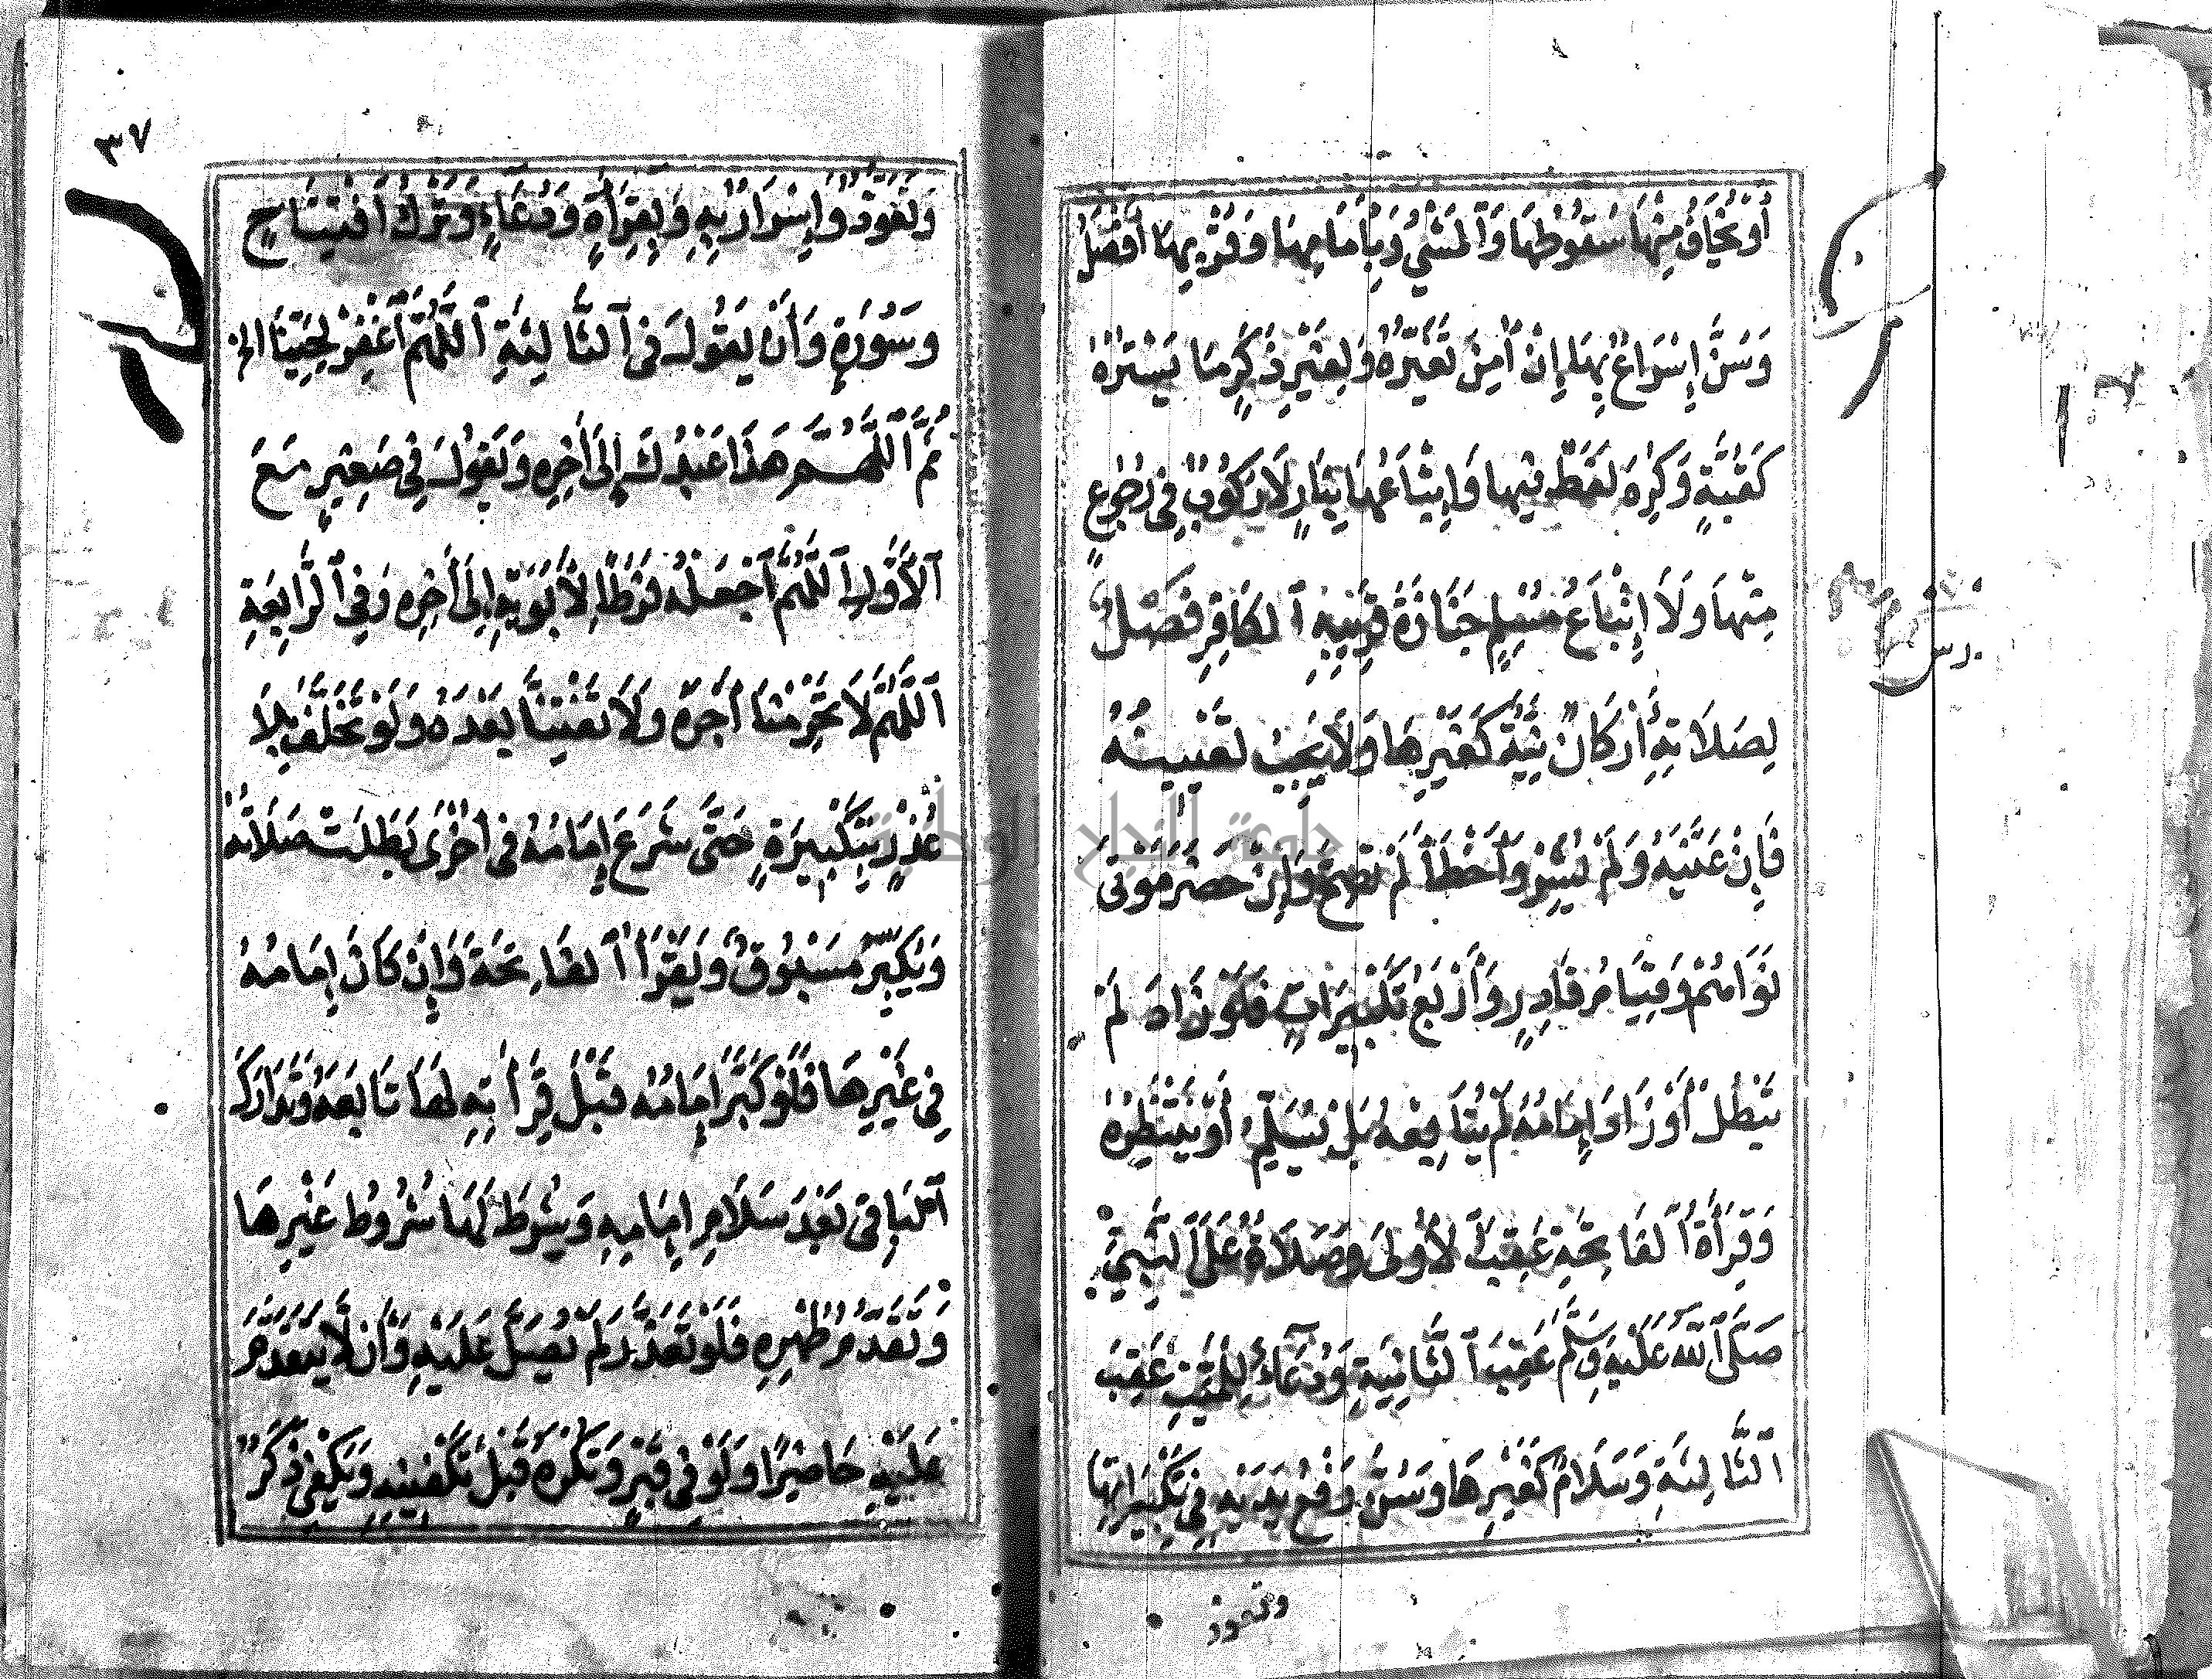 أَوْ يُخَافُ مِنْهَا سُقُوطُهَا وَٱلْمَشْيُ وَبِأَمَامِهَا وَقُرْبِهَا أَفْضَلُ
وَسُنَّ إِسْرَاعٌ بِهَا إِنْ أُمِنَ تَغَيُّرُهُ وَلِغَيْرِ ذَكَرٍ مَا يَسْتُرُهُ
كَقُبَّةٍ وَكُرِهَ لَغَطٌ فِيهَا وَإِتْبَاعُهَا بِنَارٍ لَا رُكُوبٌ فِي رُجُوعٍ
مِنْهَا وَلَا إِتْبَاعُ مُسْلِمٍ جَنَازَةَ قَرِيبِهِ ٱلْكَافِرِ فَصْلٌ
لِصَلَاتِهِ أَرْكَانٌ نِيَّةٌ كَغَيْرِهَا وَلَا يَجِبُ تَعْيِينُهُ
فَإِنْ عَيَّنَهُ وَلَمْ يُشِرْ وَأَخْطَأَ لَمْ تَصِحَّ وَإِنْ حَضَرَ مَوْتَى
نَوَاهُمْ وَقِيَامُ قَادِرٍ وَأَرْبَعُ تَكْبِيرَاتٍ فَلَوْ زَادَ لَمْ
تَبْطُلْ أَوْ زَادَ إِمَامُهُ لَمْ يُتَابِعْهُ بَلْ يُسَلِّمُ أَوْ يَنْتَظِرُهُ
وَقِرَأَةُ ٱلْفَاتِحَةِ عَقِبَ ٱلْأُولَى وَصَلَاةٌ عَلَى ٱلنَّبِيِّ
صَلَّى ٱللَّهُ عَلَيْهِ وَسَلَّمَ عَقِبَ ٱلثَّانِيَةِ وَدُعَآءٌ لِلْمَيِّتِ عَقِبَ
ٱلثَّالِثَةِ وَسَلَامٌ كَغَيْرِهَا وَسُنَّ رَفْعُ يَدَيْهِ فِي تَكْبِيرَاتِهَا
وتعوذ
٣٧
وَتَعَوُّذٌ وَإِسْرَارٌ بِهِ وَبِقِرَأَةٍ وَدُعَاءٍ وَتَرْكُ ٱفْتِتَاحٍ
وَسُورَةٍ وَأَنْ يَقُولَ فِي ٱلثَّالِثَةِ ٱللَّهُمَّ ٱغْفِرْ لِحَيِّنَا الخ
ثُمَّ ٱللَّهُمَّ هَذَا عَبْدُكَ إِلَى أَخِرِهِ وَيَقُولُ فِي صَغِيرٍ مَعَ
ٱلْأَوَّلِ ٱللَّهُمَّ ٱجْعَلْهُ فَرَطًا لِأَبَوَيْهِ إِلَى أَخِرِهِ وَفِي ٱلرَّابِعَةِ
ٱللَّهُمَّ لَا تَحْرِمْنَا أَجْرَهُ وَلَا تَفْتِنَّا بَعْدَهُ وَلَوْ تَخَلَّفَ بِلَا
عُذْرٍ بِتَكْبِيرَةٍ حَتَّى شَرَعَ إِمَامُهُ فِي أُخْرَى بَطَلَتْ صَلَاتُهُ
وَيُكَبِّرُ مَسْبُوقٌ وَيَقْرَأُ ٱلْفَاتِحَةَ وَإِنْ كَانَ إِمَامُهُ
فِي غَيْرِهَا فَلَوْ كَبَّرَ إِمَامُهُ قَبْلَ قِرَأَتِهِ لَهَا تَابَعَهُ وَتَدَارَكَ
ٱلْبَاقِي بَعْدَ سَلَامِ إِمَامِهِ وَيُشْرَطُ لَهَا شُرُوطُ غَيْرِهَا
وَتَقَدُّمُ طُهْرِهِ فَلَوْ تَعَذَّرَ لَمْ يُصَلَّ عَلَيْهِ وَأَنْ لَا يَتَقَدَّمَ
عَلَيْهِ حَاضِرًا وَلَوْ فِي قَبْرٍ وَتُكْرَهُ قَبْلَ تَكْفِينِهِ وَيَكْفِي ذَكَرٌ